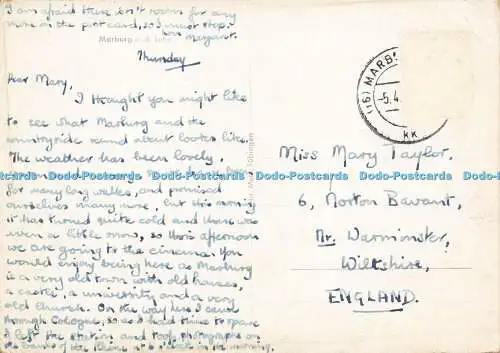 I am afraid there isn't room for any
more on the post card, so I must stop.
love Margaret.
Marburg an der Lahn
Thursday
Dear Mary,
I thought you might like
to see what Marburg and the
countryside round about looks like.
The weather has been lovely,
for many long walks, and promised
ourselves many more, but this morning
it has turned quite cold and there was
even a little snow, so this afternoon
we are going to the cinema. You
would enjoy being here as Marburg
is a very old town with old houses,
a castle, a university and a very
old church. On the way here I came
through Cologne, so as I had time to spare
I left the station and took photographs on
the banks of the Rhine at in the morning.
(16) MARB
-5.4.
kk
Miss Mary Taylor.
6, Norton Bavant,
Nr. Warminster,
Wiltshire,
ENGLAND.
Dodo-Postcards Dodo-Postcards Dodo-Postcards Dodo-Postcards Dodo-Postcards